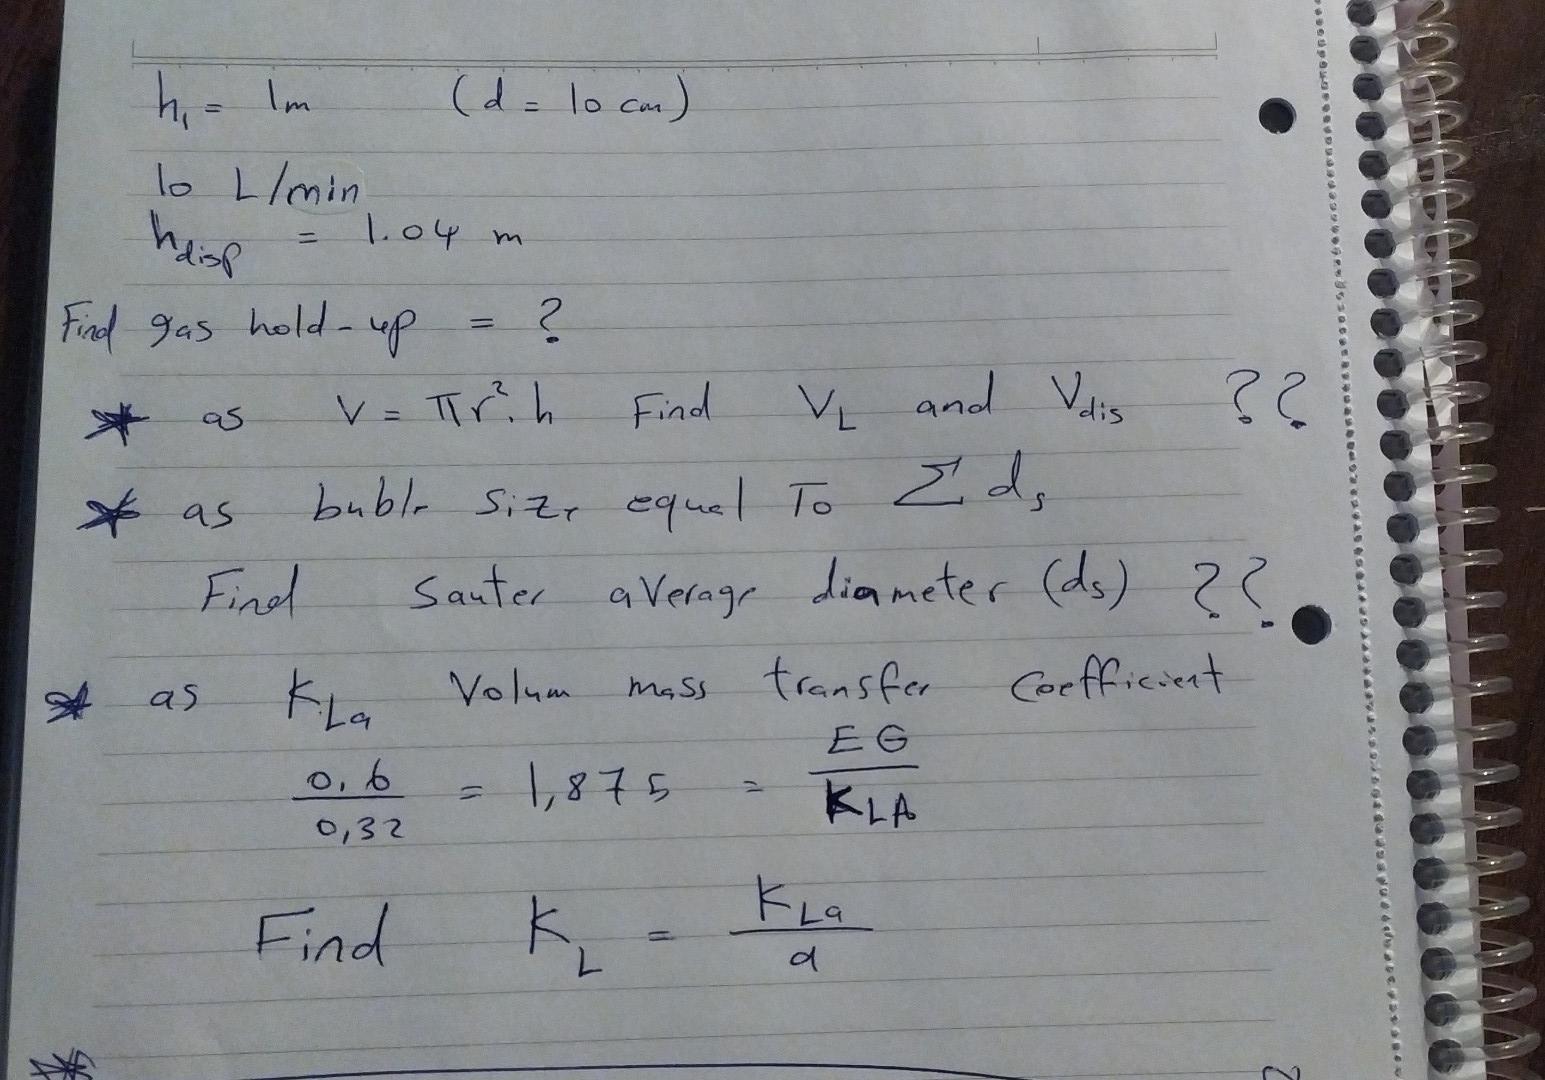 h₁ = 1m (d = 10 cm)
10 L/min
h disp = 1.04 m
Find gas hold-up = ?
* as V = πr².h Find V_L and V dis ??
* as buble Size equal To Σ ds
Find Sauter average diameter (ds) ??
* as K La Volum mass transfer Coefficient
0,6 / 0,32 = 1,875 = EG / KLA
Find K_L = K La / a
*